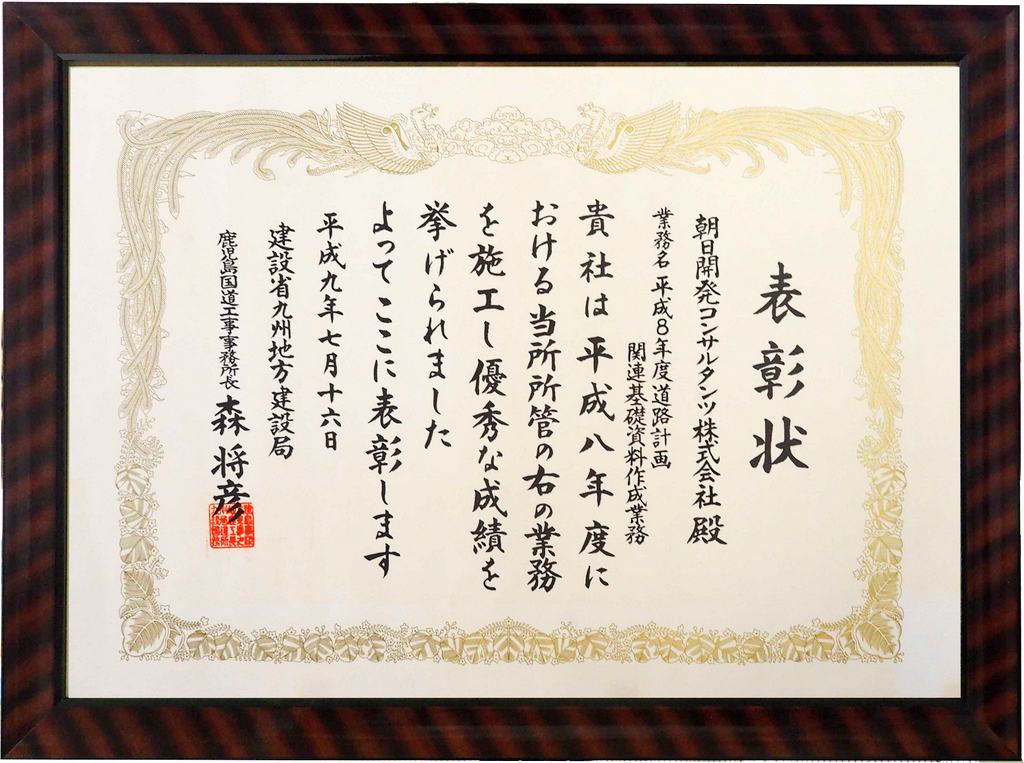 表彰状
朝日開発コンサルタンツ株式会社 殿
業務名 平成8年度道路計画
関連基礎資料作成業務
貴社は平成八年度に
おける当所所管の右の業務
を施工し優秀な成績を
挙げられました
よってここに表彰します
平成九年七月十六日
建設省九州地方建設局
鹿児島国道工事事務所長 森 将彦